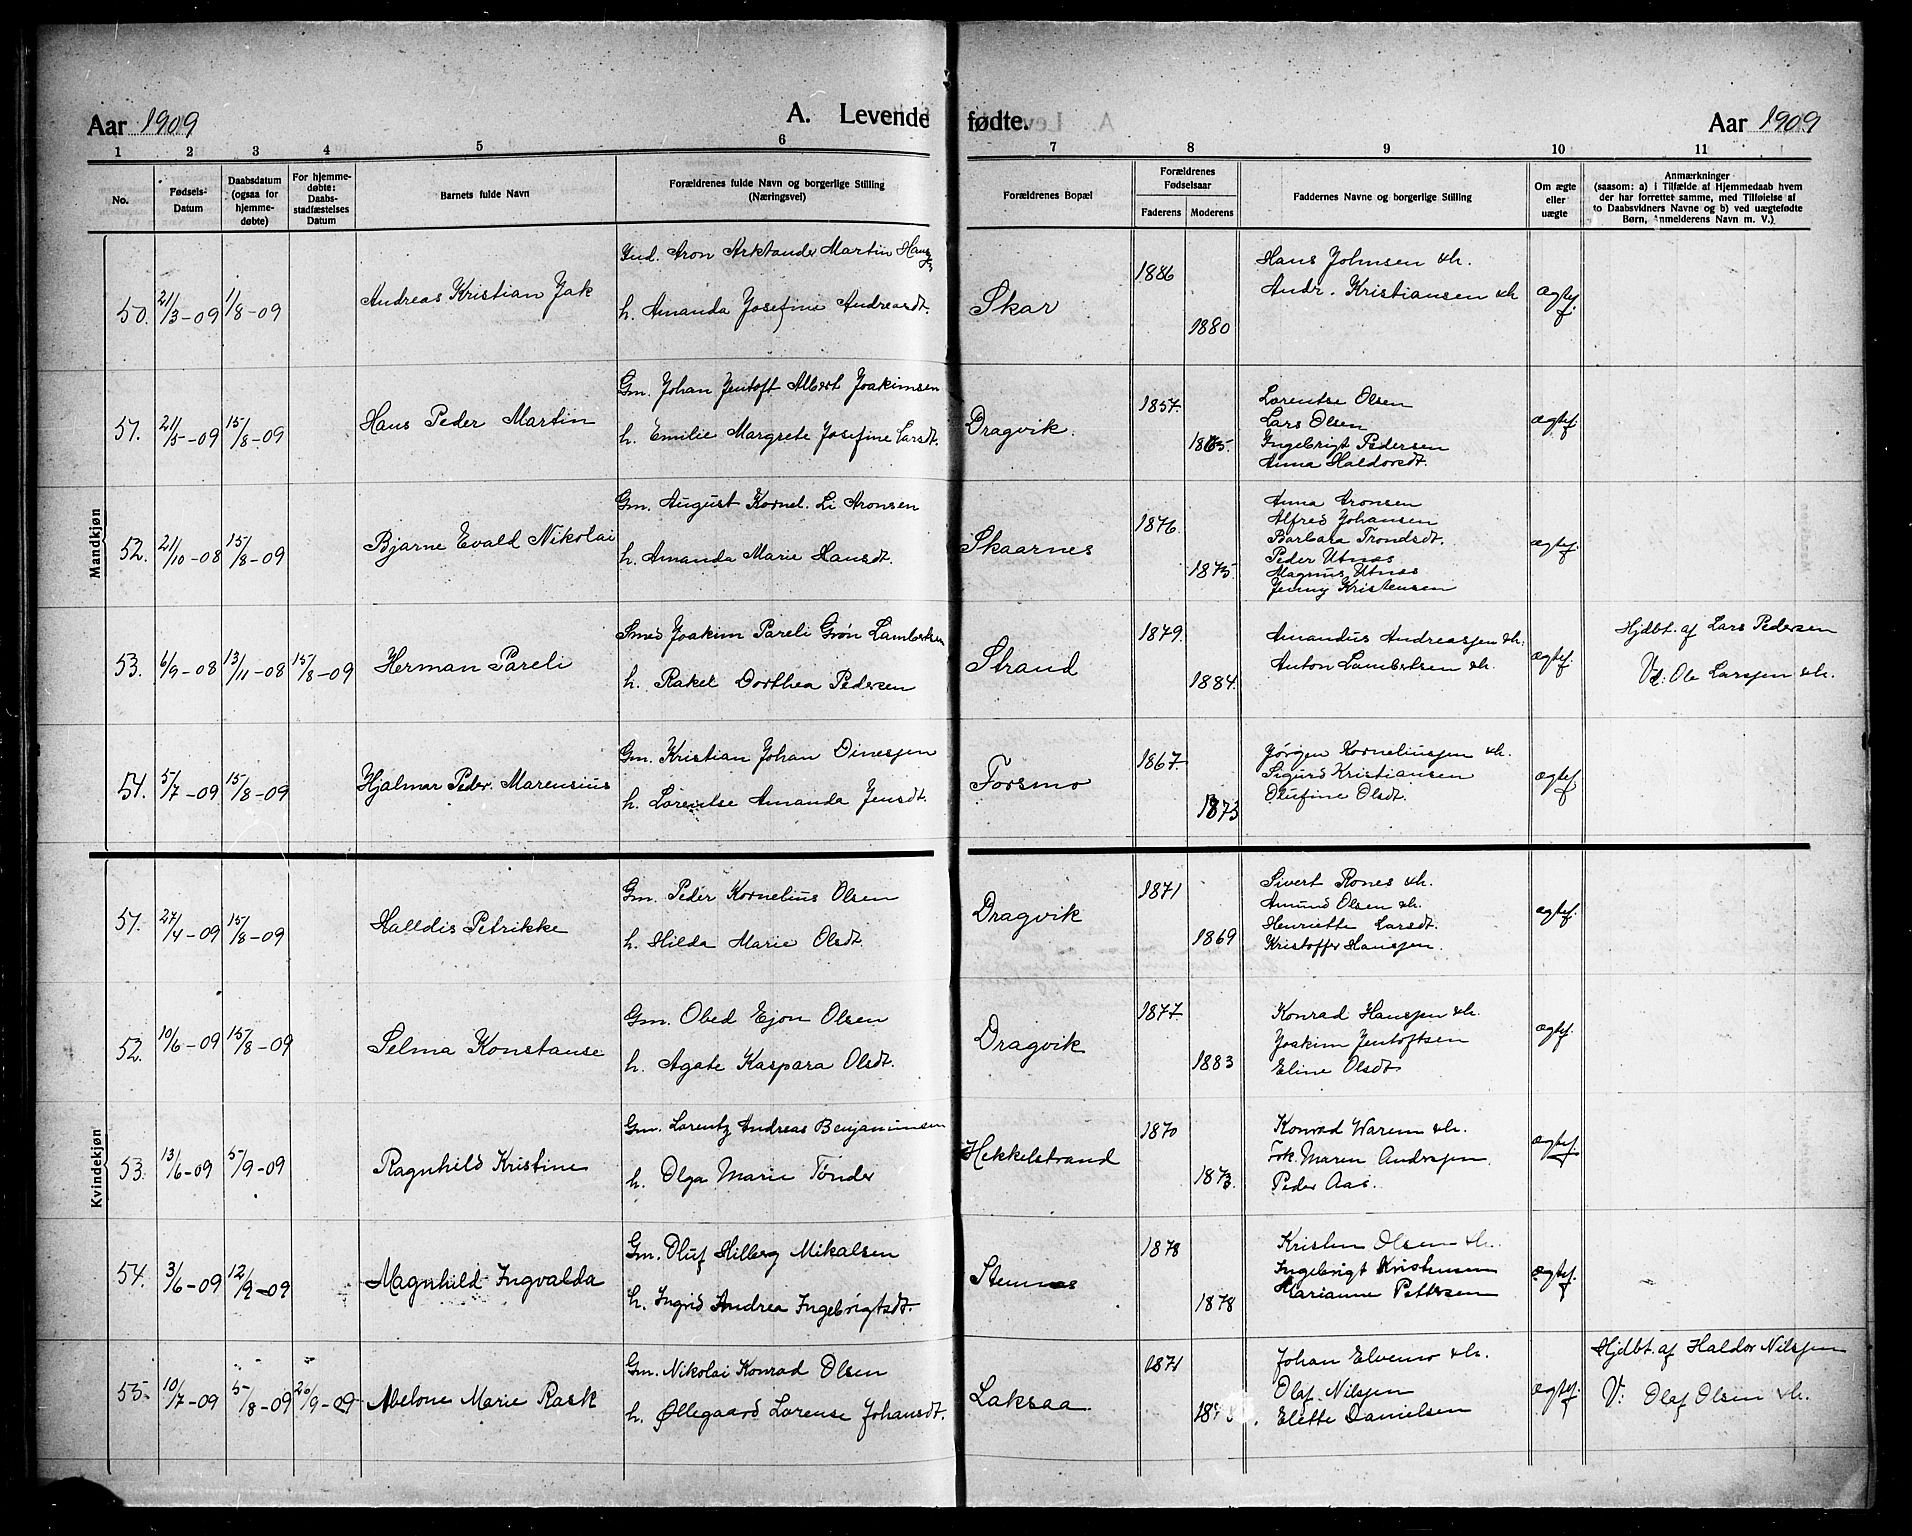 Aar 1909 A. Levende fødte. Aar 1909
1 2 3 4 5 6 7 8 9 10 11
No.
Fødsels-
Datum
Daabsdatum
(ogsaa for
hjemme-
døbte)
For hjemme-
døbte:
Daabs-
stadfæstelses
Datum
Barnets fulde Navn
Forældrenes fulde Navn og borgerlige Stilling
(Næringsvei)
Forældrenes Bopæl
Forældrenes
Fødselsaar
Faderens Moderens
Faddernes Navne og borgerlige Stilling
Om ægte
eller
uægte
Anmærkninger
(saasom: a) i Tilfælde af Hjemmedaab hvem
der har forrettet samme, med Tilføielse af
to Daabsvidners Navne og b) ved uægtefødte
Børn, Anmelderens Navn m. V.)
Mandkjøn
50. 21/3-09 1/8-09 Andreas Kristian Jak
Ind. Aron Arktander Martin
h. Amanda Josefine Andreasdt.
Skar 1886 1880
Hans Johnsen &h.
Andr. Kristiansen &h
ægtef.
51. 21/5-09 15/8-09 Hans Peder Martin
Gm. Johan Jentoft Albert Joakimsen
h. Emilie Margrete Josefine Larsdt.
Dragvik. 1857.
Lorentse Olsen
Lars Olsen
Ingebrigt Pedersen
Anna Haldorsdt.
ægtef.
52. 21/10-08 15/8-09 Bjarne Evald Nikolai
Gm. August Kornel. Li Aronsen
h. Amanda Marie Hansdt.
Skaarnes 1876. 1875.
Anna Aronsen
Alfred Johansen
Barbara Trondsdt.
Peder Utnæs
Magnus Utnæs
Jenny Kristensen
ægtef.
53. 6/9-08 13/11-08 15/8-09 Herman Pareli
Smed Joakim Pareli Grøn Lambertsen
h. Rakel Dorthea Pedersen
Strand 1879. 1884.
Amandus Andreassen &h.
Anton Lambertsen &h.
ægtef.
Hjdbt. af Lars Pedersen
V: Ole Larssen &h.
54. 5/7-09 15/8-09 Hjalmar Peder Marensius
Gm. Kristian Johan Dinessen
h. Lorentse Amanda Jensdt.
Forsmo 1867. 1873
Jørgen Korneliussen &h.
Sigurd Kristiansen
Olufine Olsdt.
ægtef.
Kvindekjøn
51. 27/4-09 15/8-09 Halldis Petrikke
Gm. Peder Kornelius Olsen
h. Hilda Marie Olsdt.
Dragvik 1871 1869
Sivert Rones &h.
Amund Olsen &h.
Henriette Larsdt.
Kristoffer Hanssen.
ægtef.
52. 10/6-09 15/8-09 Selma Konstanse
Gm. Obed Ejon Olsen
h. Agate Kaspara Olsdt.
Dragvik 1877. 1883
Konrad Hanssen &h.
Joakim Jentoftsen
Eline Olsdt
ægtef.
53. 13/6-09 5/9-09 Ragnhild Kristine
Gm. Lorentz Andreas Benjaminsen
h. Olga Marie Tønder
Hekkelstrand 1870 1873.
Konrad Warem &h.
Frk. Maren Andrssen.
Peder Aas.
ægtef.
54. 3/6-09 12/9-09 Magnhild Ingvalda
Gm. Oluf Hilberg Mikalsen
h. Ingrid Andrea Ingebrigtsdt.
Stemnes 1878 1878
Kristen Olsen &h.
Ingebrigt Kristensen
Marianne Pettersen
ægtef.
55. 10/7-09 5/8-09 26/9-09 Abelone Marie Rask
Gm. Nikolai Konrad Olsen
h. Øllegaard Lorense Johansdt.
Laksaa. 1871
Johan Elvemo &h.
Olaf Nilssen
Elette Danielsen
ægtef.
Hjdbt. af Haldor Nilssen
V: Olaf Olsen &h.